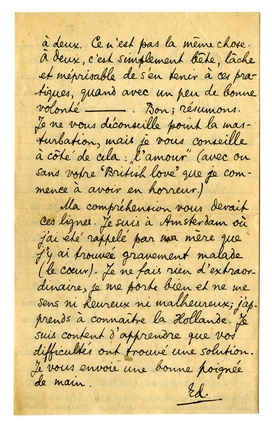 à deux. Ce n'est pas la même chose.
À deux, c'est simplement bête, lâche
et méprisable de s'en tenir à ces pra-
tiques, quand avec un peu de bonne
volonté ———. Bon; résumons.
Je ne vous déconseille point la mas-
turbation, mais je vous conseille
à côté de cela: "l'amour" (avec ou
sans votre 'British love' que je com-
mence à avoir en horreur.)
Ma compréhension vous devait
ces lignes. Je suis à Amsterdam où
j'ai été rappelé par ma mère que
j'y ai trouvée gravement malade
(le cœur). Je ne fais rien d'extraor-
dinaire, je me porte bien et ne me
sens ni heureux ni malheureux; j'ap-
prends à connaître la Hollande. Je
suis content d'apprendre que vos
difficultés ont trouvé une solution.
Je vous envoie une bonne poignée
de main.
Ed.